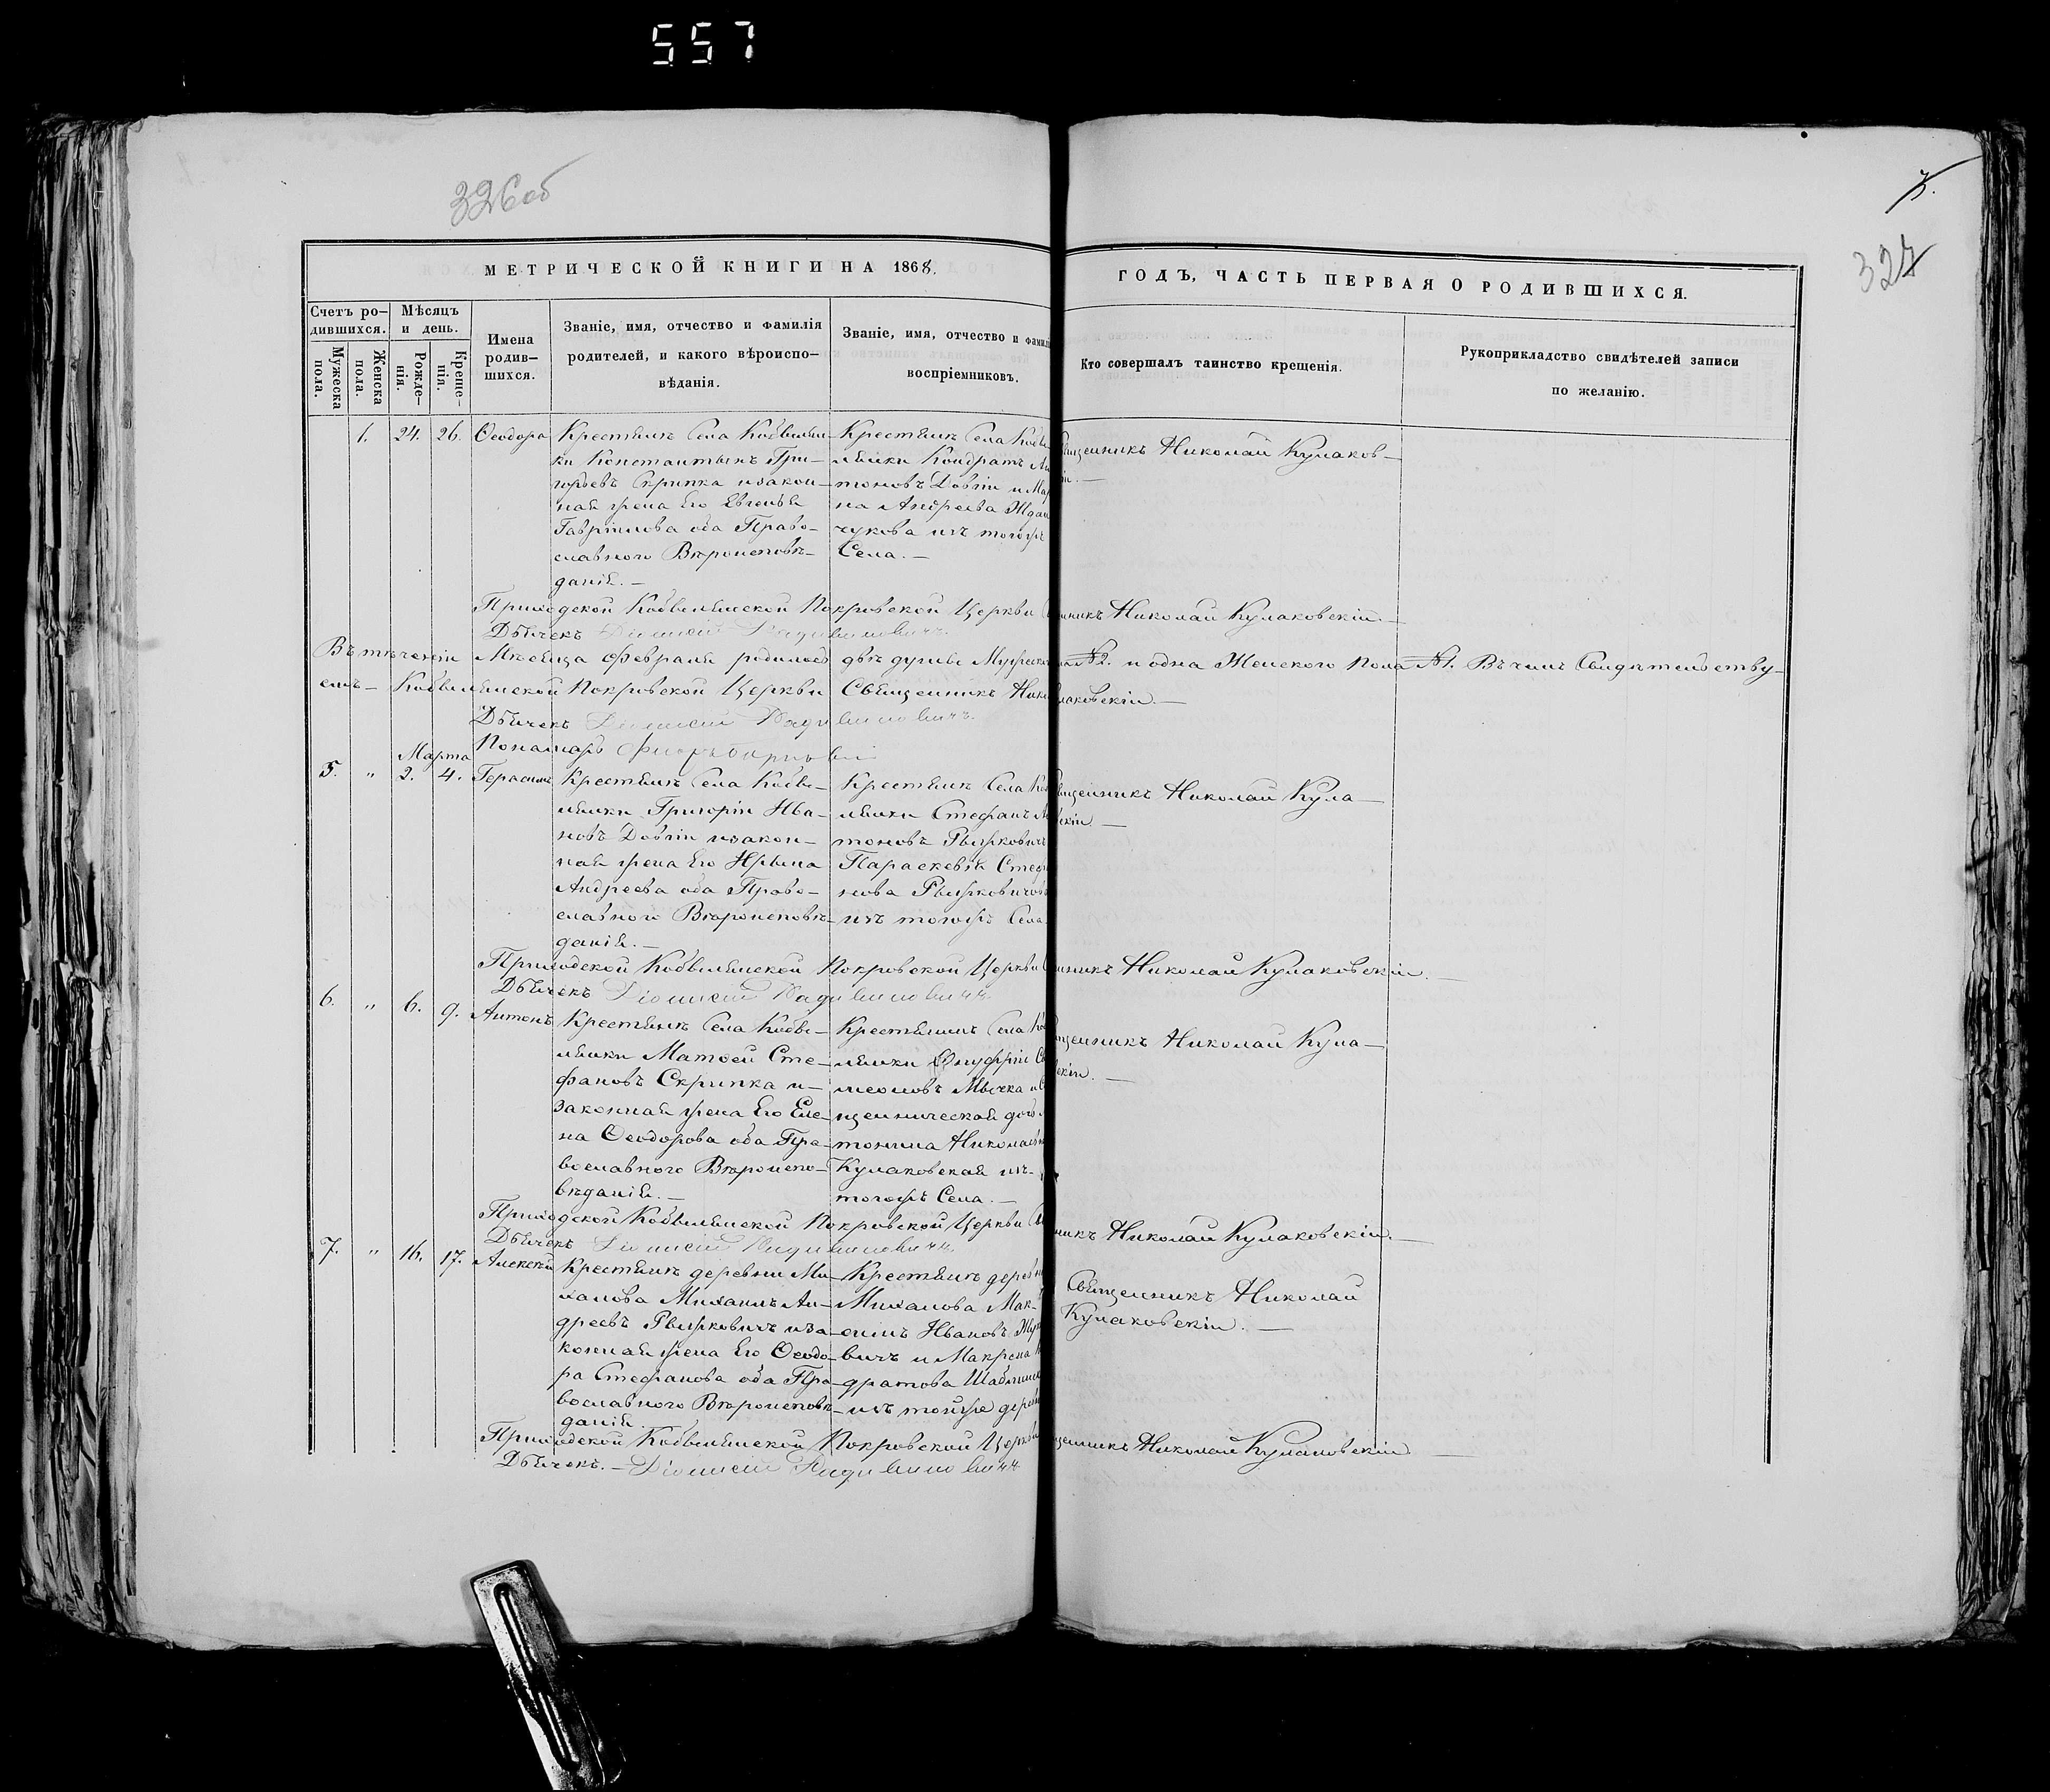 557
326об
7.
327
МЕТРИЧЕСКОЙ КНИГИ НА 1868.
ГОДЪ, ЧАСТЬ ПЕРВАЯ О РОДИВШИХСЯ.
Счетъ ро-
дившихся.
Мужеска
пола.
Женска
пола.
Мѣсяцъ
и день.
Рожде-
нія.
Креще-
нія.
Имена
родив-
шихся.
Званіе, имя, отчество и фамилія
родителей, и какого вѣроиспо-
вѣданія.
Званіе, имя, отчество и фамилі
воспріемниковъ.
Кто совершалъ таинство крещенія.
Рукоприкладство свидѣтелей записи
по желанію.
1. 24. 26. Ѳеодора
Крестьянъ Села Кобылян-
ки Константынъ Гри-
горьевъ Скрипка изакон-
ная жена Его Евгенья
Гавріилова оба Право-
славного Вѣроисповѣ-
данія.-
Крестьянъ Села Кобы
лянки Кондратъ Ан
тоновъ Довгій и Мар
на Андреева Ждан
чукова изъ тогожъ
Села.-
щенникъ Николай Кулаков-
ій.-
Приходской Кобылянской Покровской Церкви
никъ Николай Кулаковскій.-
Дьячекъ Діонисій
Въ теченіи Мѣсяца Февраля родилось двѣ душы Мужеска
№2. и одна Женского Пола №1. Въ чемъ Свидѣтельству-
емъ- Кобылянской Покровской Церкви Священникъ Ник
лаковскій.-
Дьячекъ Діонисій
Понамарь
Марта
5. " 2. 4. Герасимъ
Крестьянъ Села Кобы-
лянки Григорій Ива-
новъ Довгій изакон-
ная жена Его Ирына
Андреева оба Право-
славного Вѣроисповѣ-
данія.-
Крестьянъ Села Коб
лянки Стефанъ Ан
тоновъ Рыжковичъ
Параскевія Стефа
нова Рыжковичов
изъ тогожъ Села
щенникъ Николай Кула-
скій.-
Приходской Кобылянской Покровской Церкви
никъ Николай Кулаковскій.-
Дьячекъ Діонисій
6. " 6. 9. Антонъ
Крестьянъ Села Кобы-
лянки Матѳей Сте-
фановъ Скрипка и-
Законная жена Его Еле-
на Ѳеодорова оба Пра-
вославного Вѣроиспо-
вѣданія.-
Крестьянинъ Села Коб
лянки Онуфрій Си
меоновъ Мычка и С
щенническая дочь
тонина Николаевн
Кулаковская изъ-
тогожъ Села.-
щенникъ Николай Кула-
скій.-
Приходской Кобылянской Покровской Церкви
никъ Николай Кулаковскій.-
Дьячекъ Діонисій
7. " 16. 17. Алексѣй
Крестьянъ деревни Ми-
халова Михаилъ Ан-
дреевъ Рыжковичъ иза-
конная жена Его Ѳеодо-
ра Стефанова оба Пра-
вославного Вѣроисповѣ-
данія.
Крестьянъ деревн
Михалова Мак-
симъ Ивановъ
вичъ и Макрена
дратова
изъ тойже дерев
Священникъ Николай
Кулаковскій.-
Приходской Кобылянской Покровской Церкви
щенникъ Николай Кулаковскій
Дьячекъ.- Діонисій